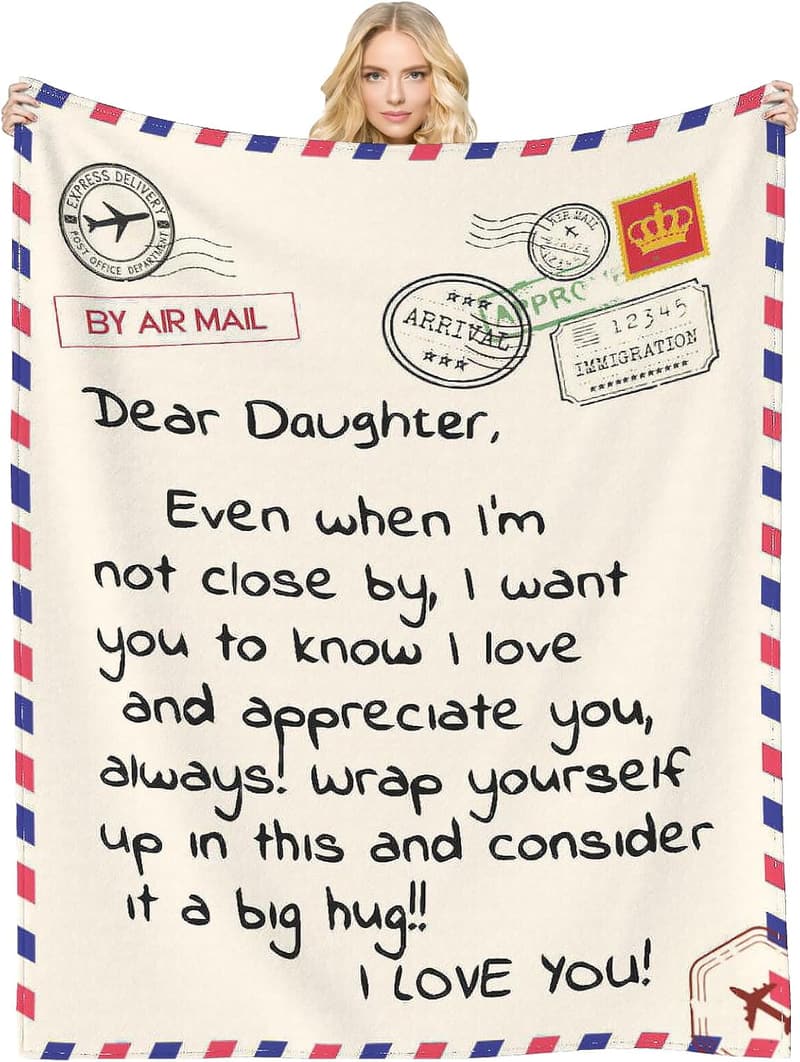 EXPRESS DELIVERY
POST OFFICE DEPARTMENT
BY AIR MAIL
AIR MAIL
12345
APPRO
ARRIVAL
12345
IMMIGRATION
Dear Daughter,
Even when I'm
not close by, I want
you to know I love
and appreciate you,
always! wrap yourself
up in this and consider
it a big hug!!
I LOVE YOU!